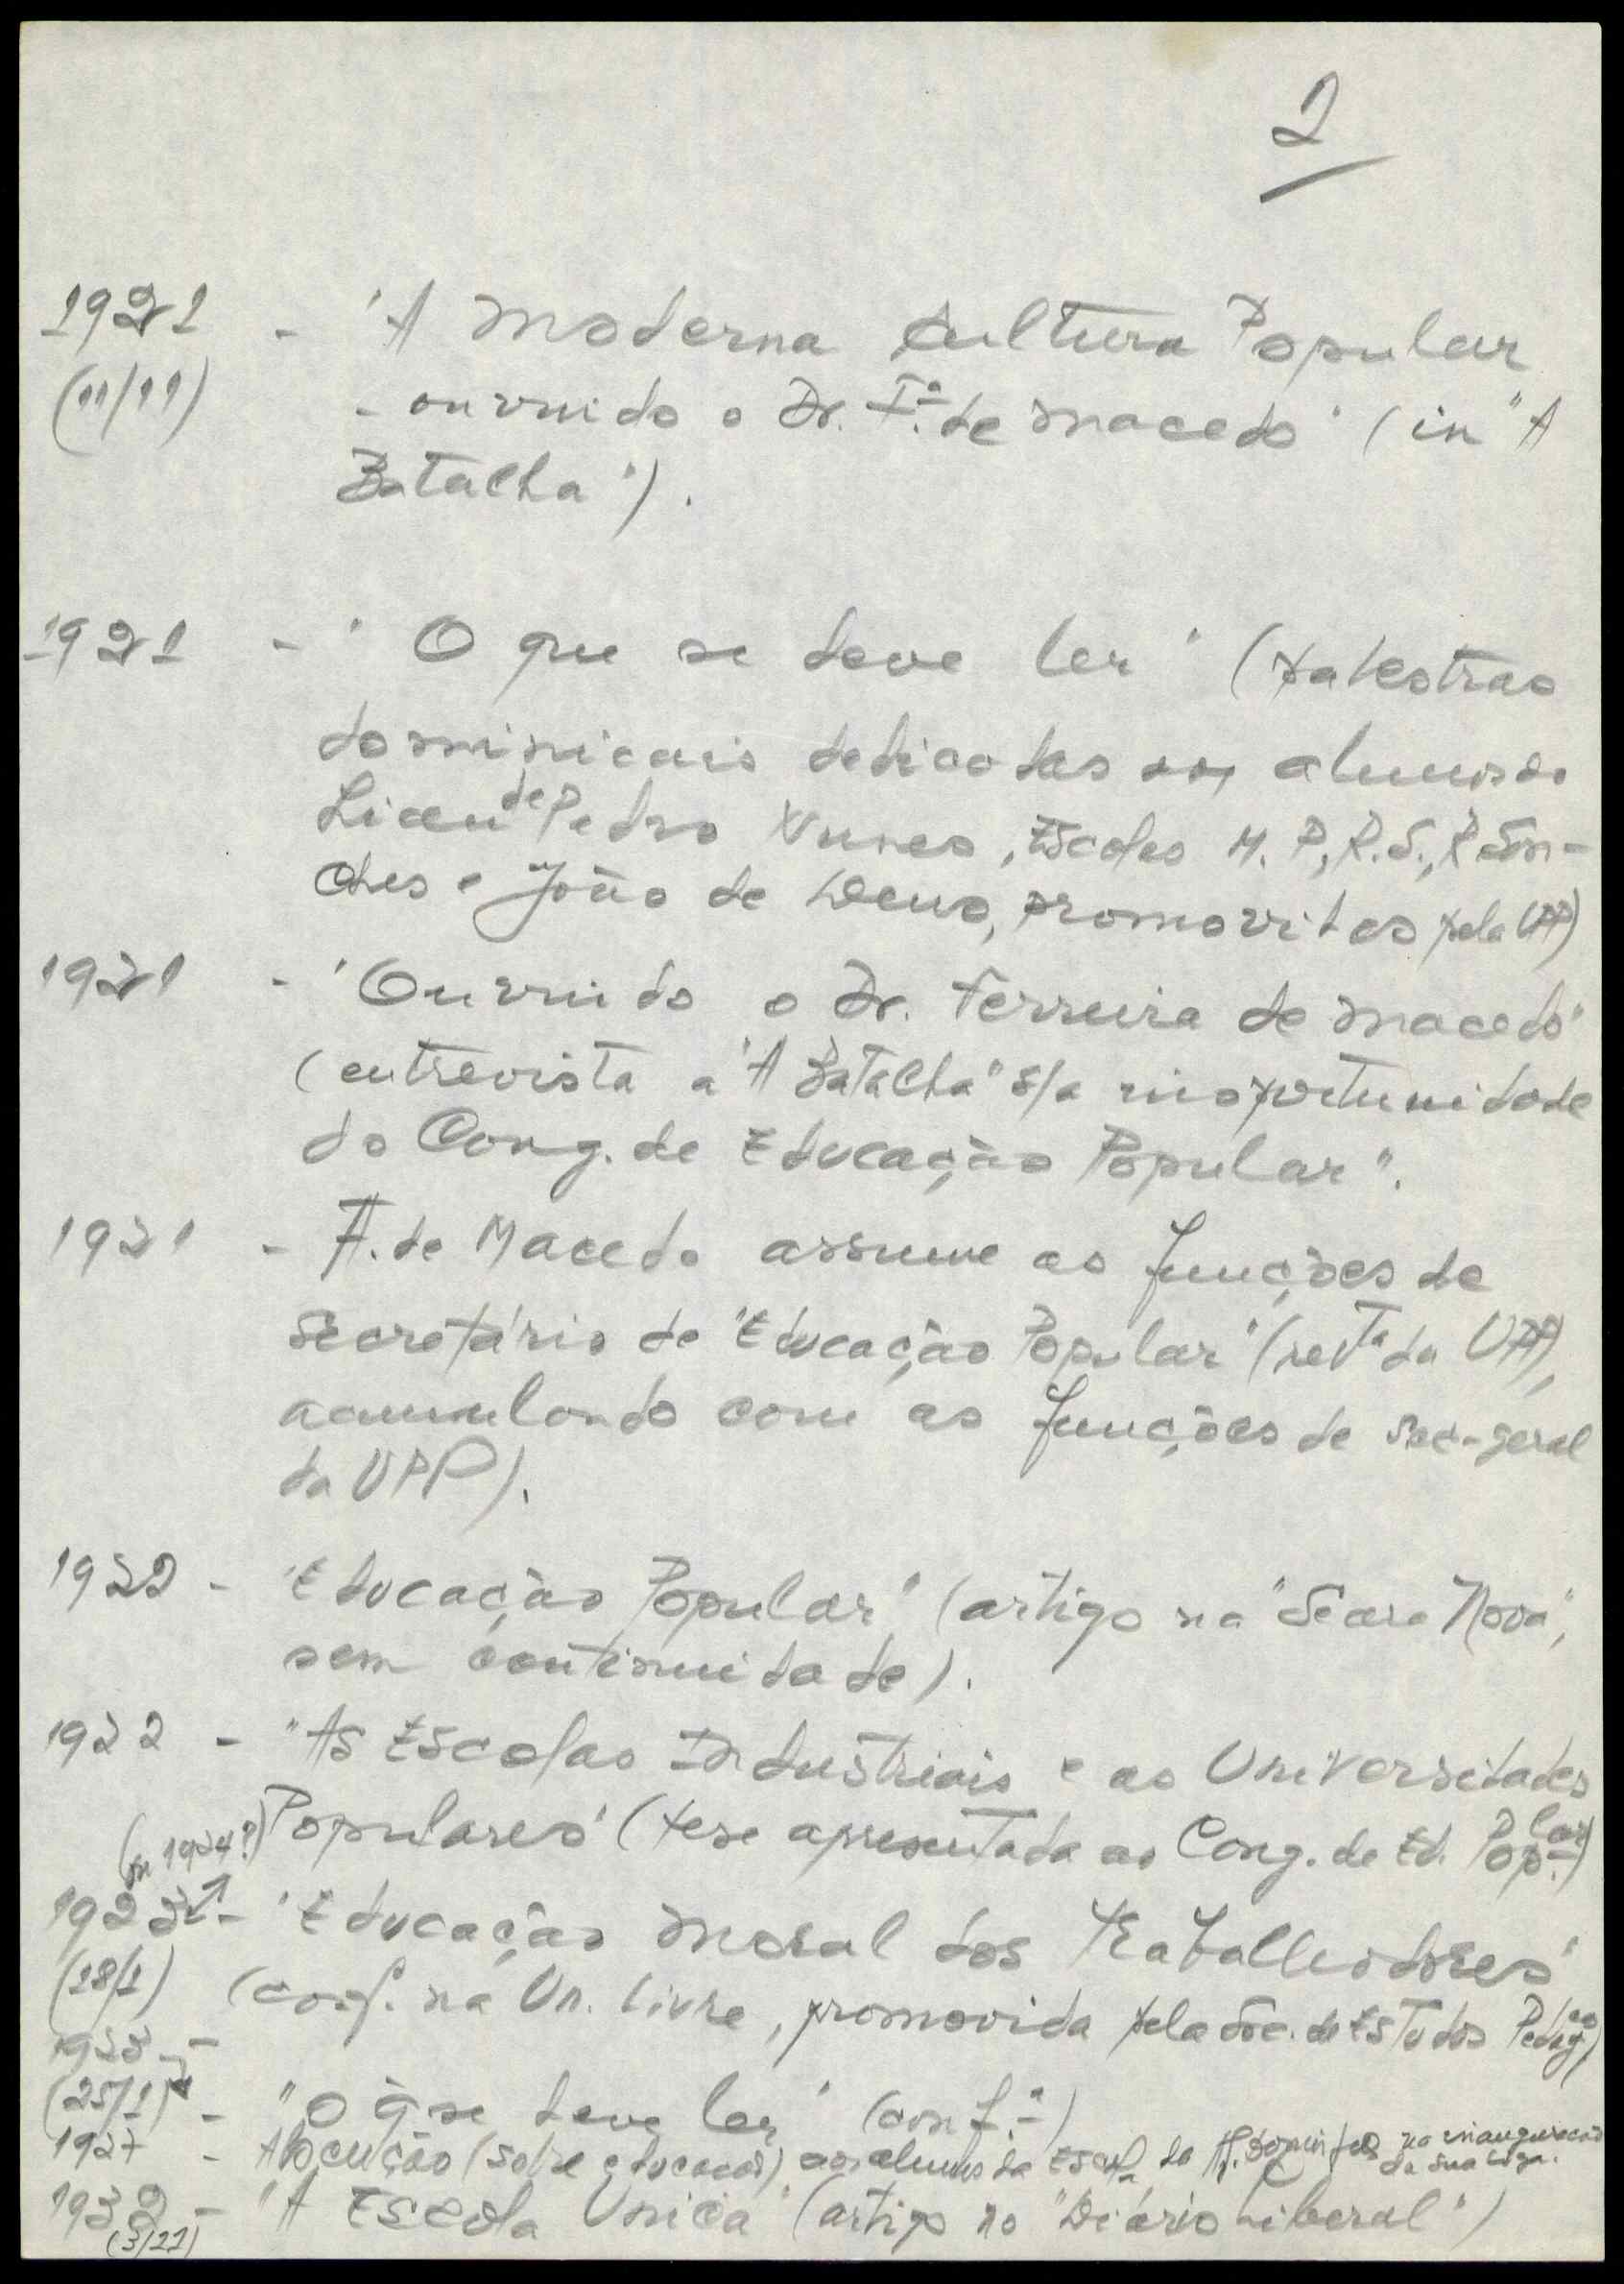 2
1921 - "A Moderna Cultura Popular
(11/11) - ouvindo o Dr. F.ª de Macedo" (in "A
Batalha").
1921 - "O que se deve ler" (palestras
dominicais dedicadas aos alunos do
Liceu de Pedro Nunes, Escolas M. P., R. S., R. Sân-
ches e João de Deus, promovidas pela UPP)
1921 - "Ouvindo o Dr. Ferreira de Macedo"
(entrevista a "A Batalha" s/a inoportunidade
do Cong. de Educação Popular".
1921 - F. de Macedo assume as funções de
Secretário de "Educação Popular" (revta da UPP),
acumulando com as funções de sec-geral
da UPP).
1922 - "Educação Popular" (artigo na "Seara Nova",
sem continuidade).
1922 - "As Escolas Industriais e as Universidades
Populares" (tese apresentada ao Cong. de Ed. Poplar)
(ou 1924?)
1923 - "Educação Moral dos Trabalhadores"
(18/1) (conf. na Un. Livre, promovida pela Soc. de Estudos Pedagcos)
1923 -
(25/1) - "O q se deve ler" (conf.ª)
1927 - Alocução (sobre educação) aos alunos da Escola de Af. Domingues na inauguração da sua Liga.
1932 - "A Escola Única" (artigo no "Diário Liberal")
(3/11)